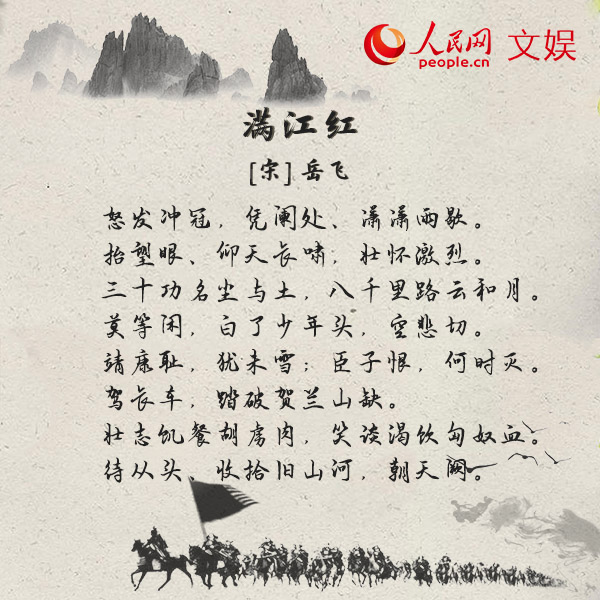 人民网 文娱
people.cn
满江红
[宋] 岳飞
怒发冲冠，凭阑处、潇潇雨歇。
抬望眼、仰天长啸，壮怀激烈。
三十功名尘与土，八千里路云和月。
莫等闲，白了少年头，空悲切。
靖康耻，犹未雪；臣子恨，何时灭。
驾长车，踏破贺兰山缺。
壮志饥餐胡虏肉，笑谈渴饮匈奴血。
待从头、收拾旧山河，朝天阙。